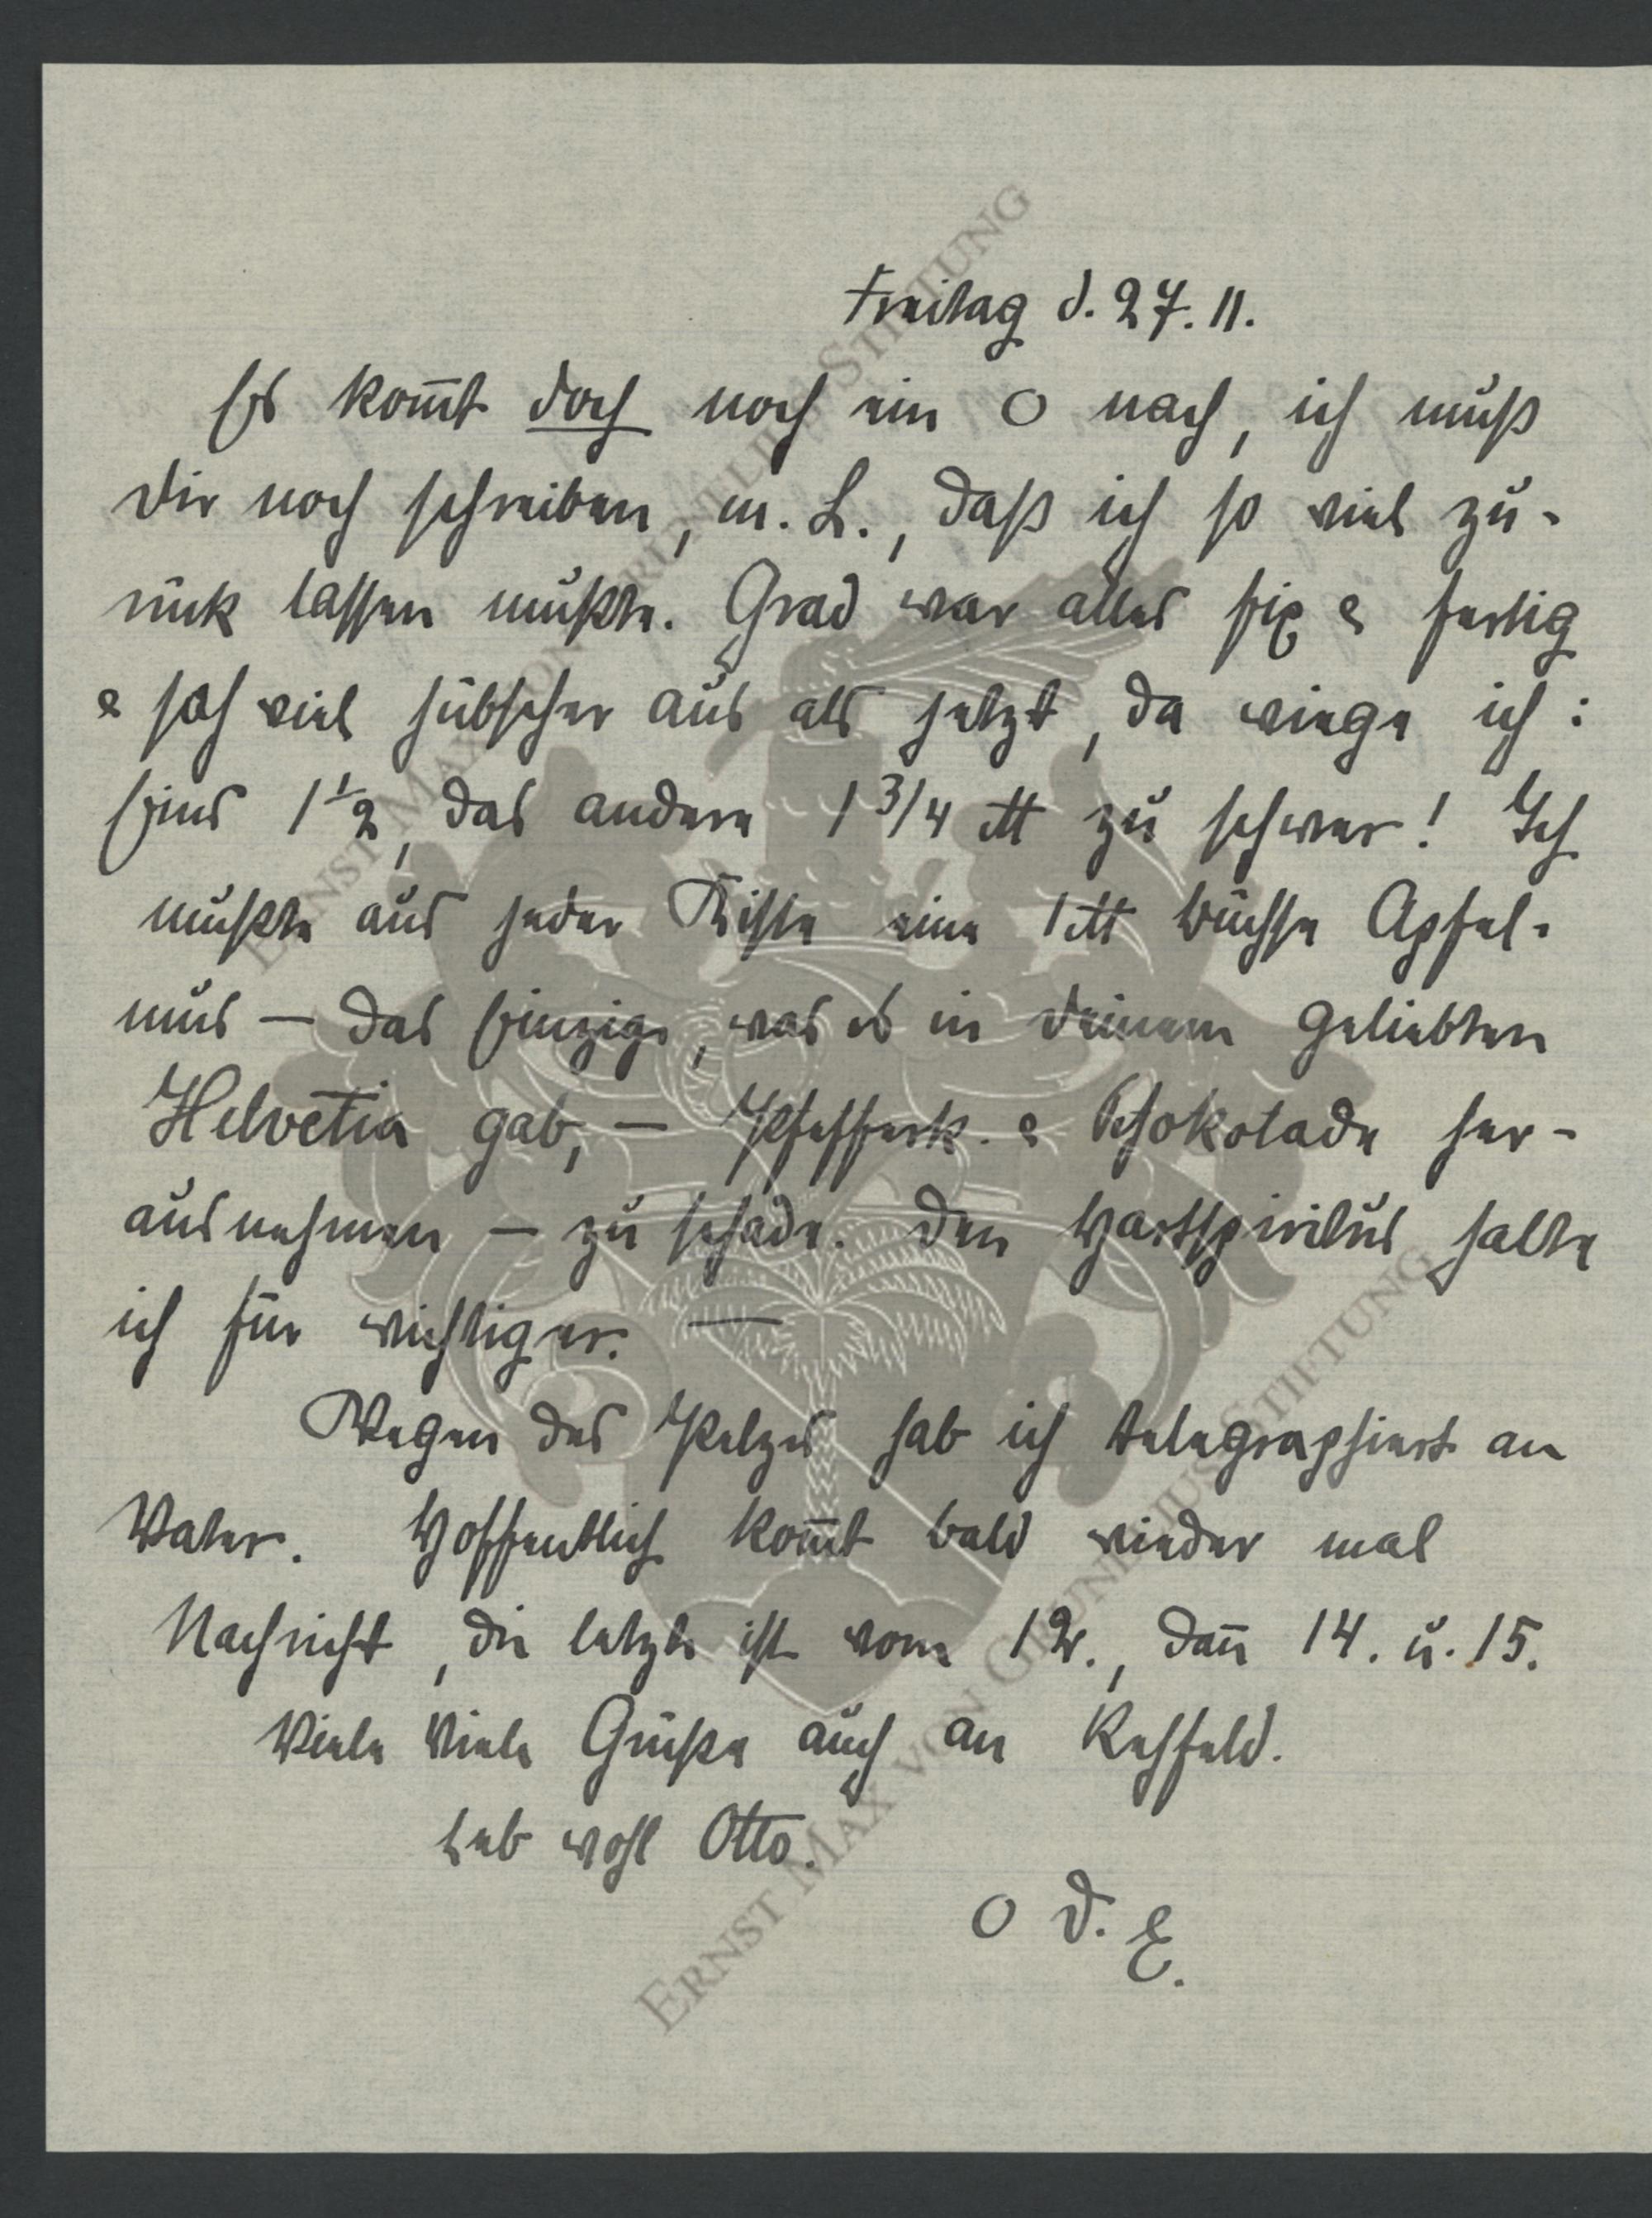 Freitag d. 27. 11.
Es kom̄t doch noch ein O nach, ich muß
dir noch schreiben, m. L., daß ich so viel zu-
rück lassen mußte. Grad war alles fix & fertig
& sah viel hübscher aus als jetzt, da wiege ich:
Eins 1½, das andere 1 3/4 ℔ zu schwer! Ich
mußte aus jeder Kiste eine 1 ℔ Büchse Apfel-
mus — das Einzige, was es in deinem geliebten
Helvetia gab, — Pfefferk. & Schokolade her-
ausnehmen — zu schade. Den Hartspiritus halte
ich für wichtiger. —
Wegen des Pelzes hab ich telegraphiert an
Vater. Hoffentlich kom̄t bald wieder mal
Nachricht, die letzte ist vom 12., dan̄ 14. u. 15.
Viele Viele Grüße auch an Rehfeld.
Leb wohl Otto.
O d. E.
ERNST MAX VON GRUNELIUS STIFTUNG
ERNST MAX VON GRUNELIUS STIFTUNG